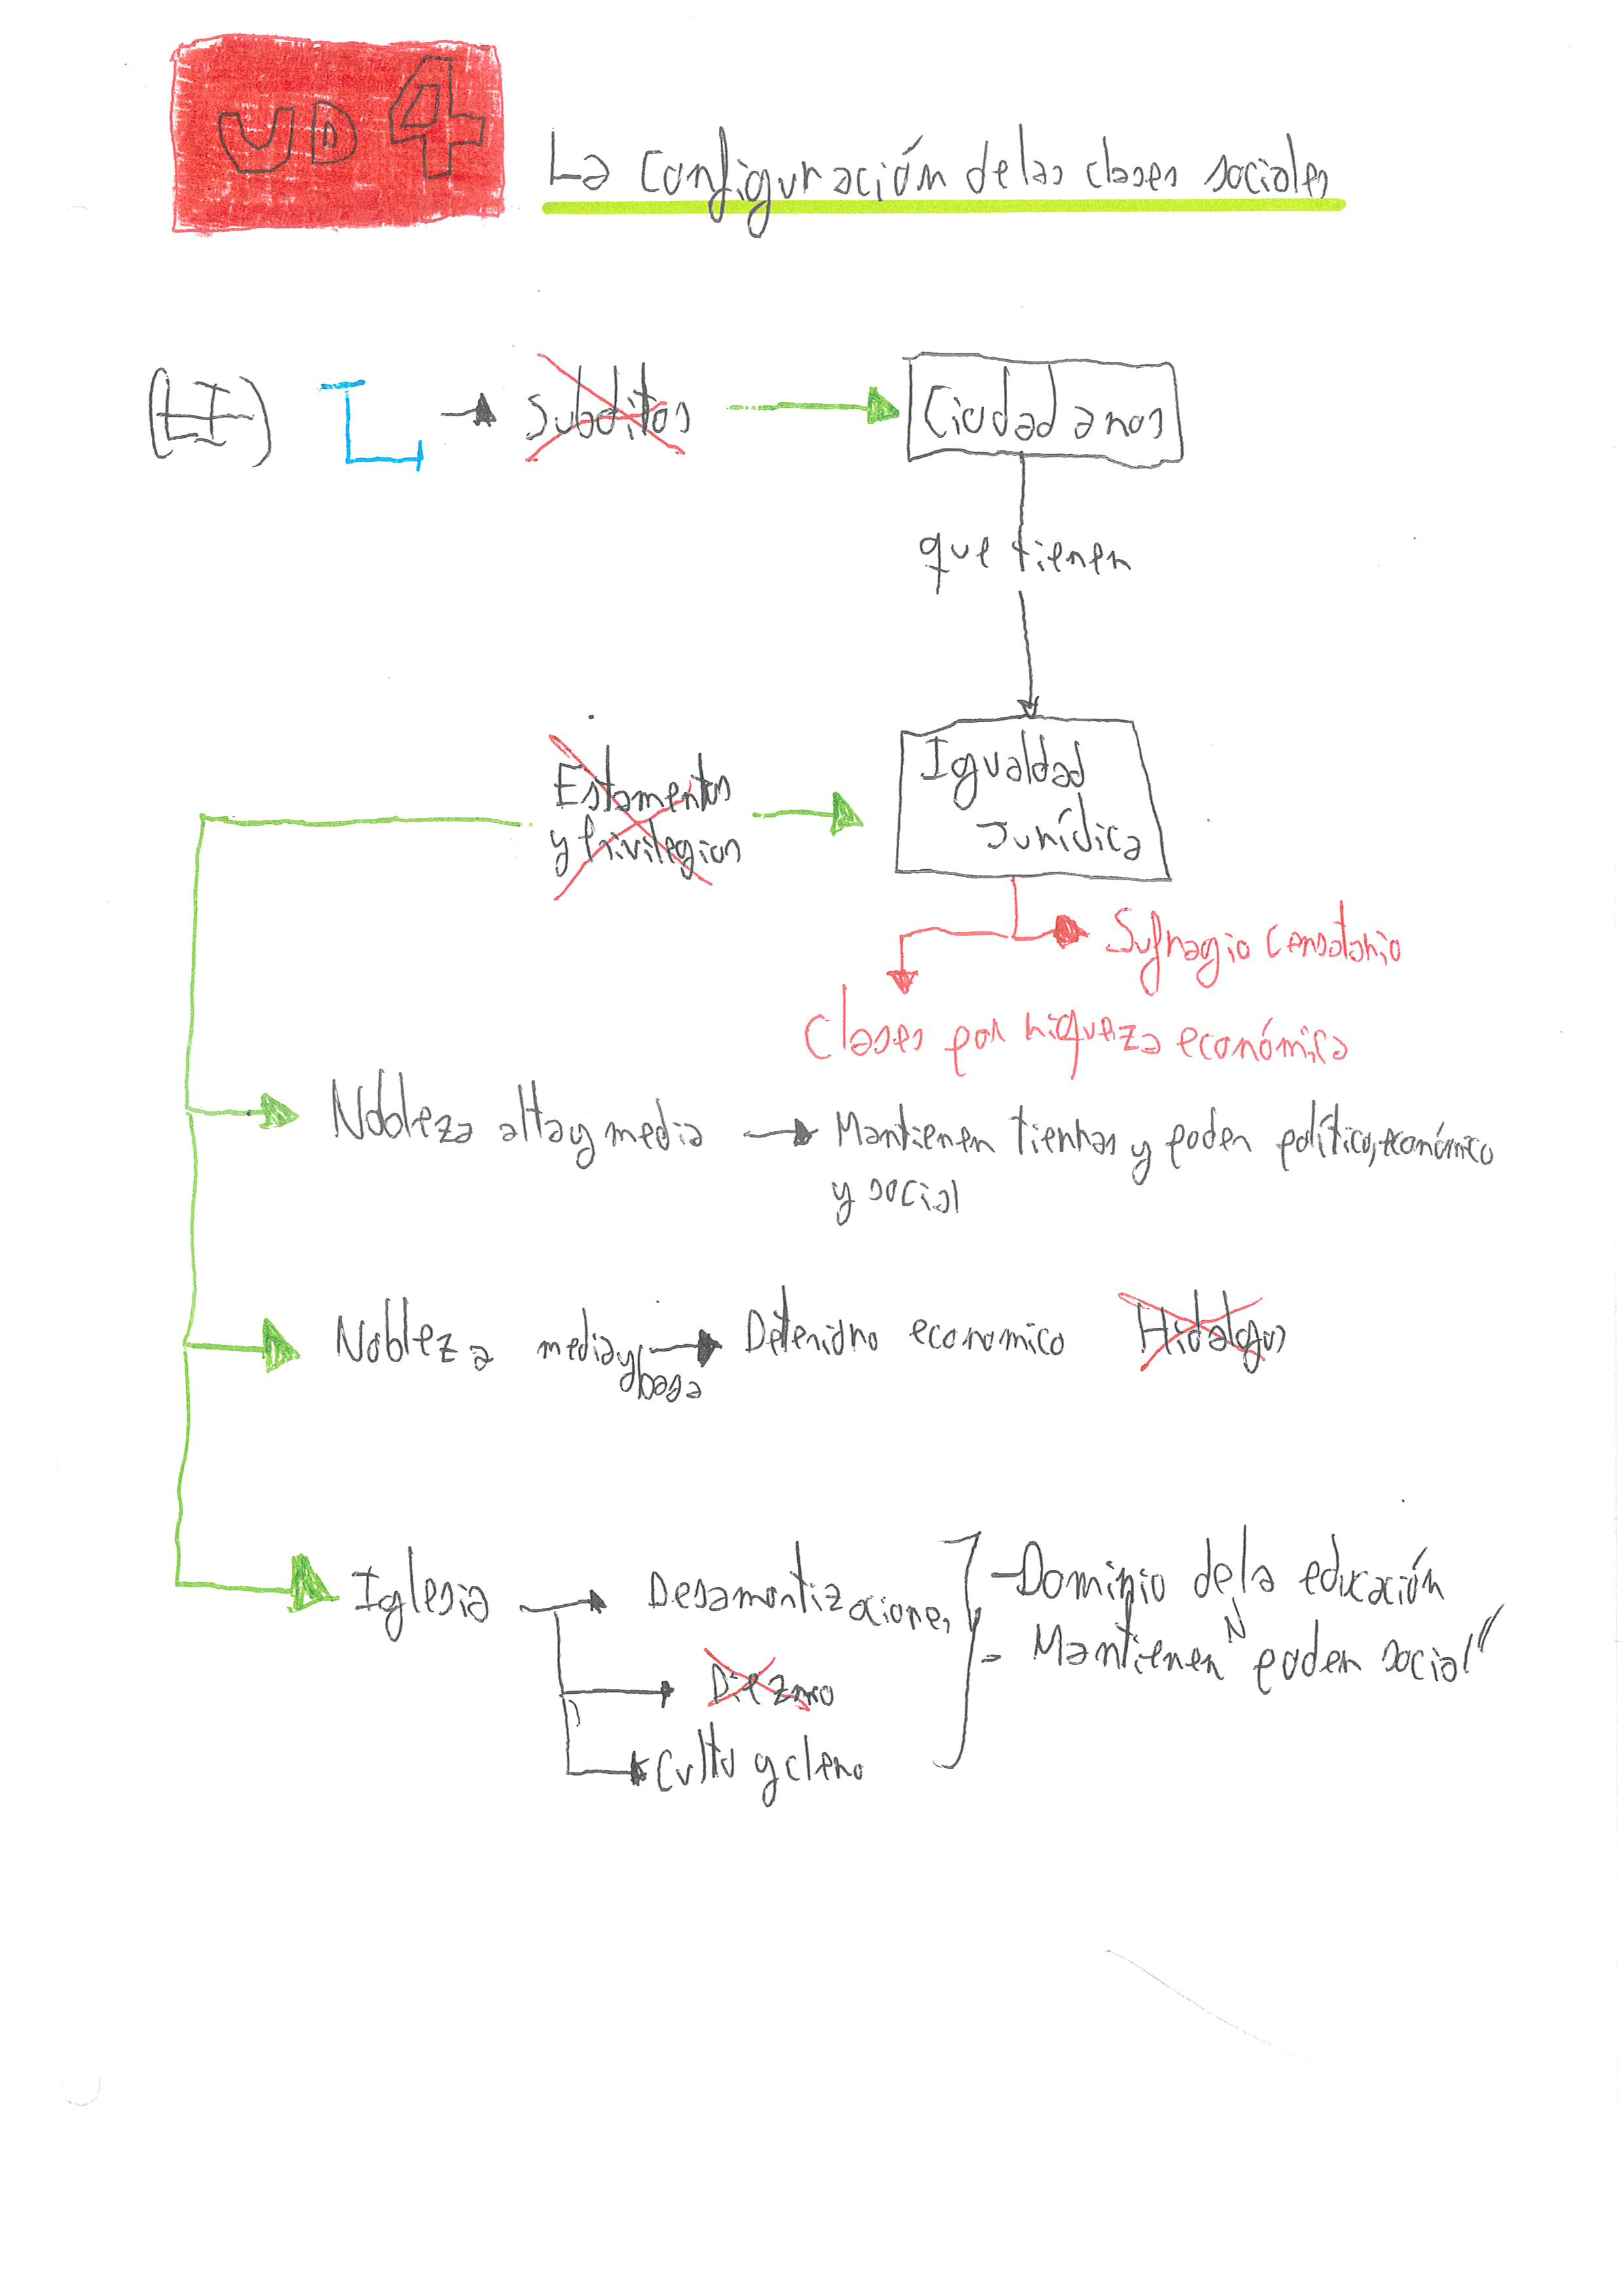 UD 4
La configuración de las clases sociales
Subditos
Ciudadanos
que tienen
Estamentos
y Privilegios
Igualdad
Jurídica
Sufragio censatario
Clases por riqueza económica
Nobleza alta y media
Mantienen tierras y poder político, económico
y social
Nobleza media y
baga
Deterioro economico
Hidalgos
Iglesia
Desamortizaciones
Diezmo
Culto y clero
-Dominio de la educación
- Mantienen "poder social"